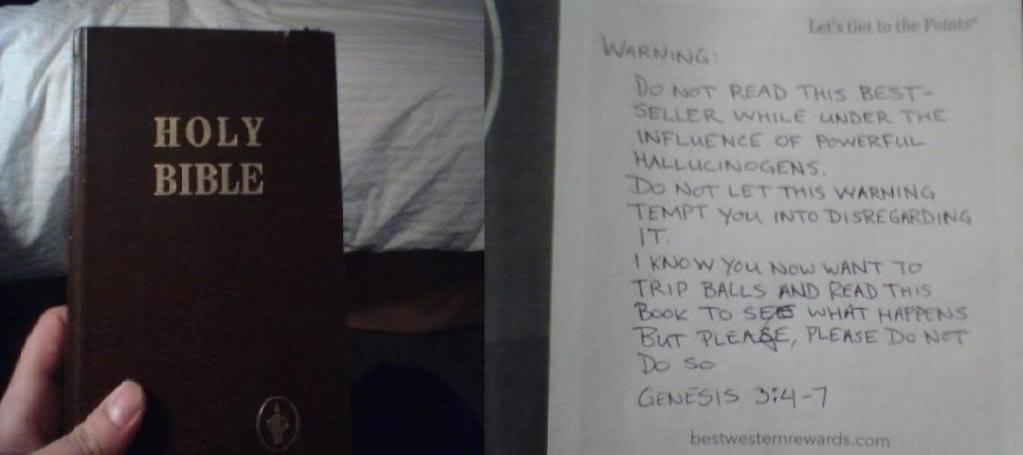 HOLY
BIBLE
Let's Get to the Points®
WARNING:
DO NOT READ THIS BEST-
SELLER WHILE UNDER THE
INFLUENCE OF POWERFUL
HALLUCINOGENS.
DO NOT LET THIS WARNING
TEMPT YOU INTO DISREGARDING
IT.
I KNOW YOU NOW WANT TO
TRIP BALLS AND READ THIS
BOOK TO SEE WHAT HAPPENS
BUT PLEASE, PLEASE DO NOT
DO SO
GENESIS 3:4-7
bestwesternrewards.com